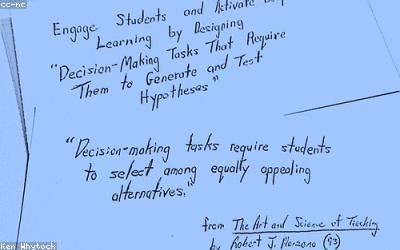 cc-nc
Engage Students and Activate
Learning by Designing
"Decision-Making Tasks That Require
Them to Generate and Test
Hypotheses"
"Decision-making tasks require students
to select among equally appealing
alternatives."
from The Art and Science of Teaching
by Robert J. Marzano (93)
Ken Whytock